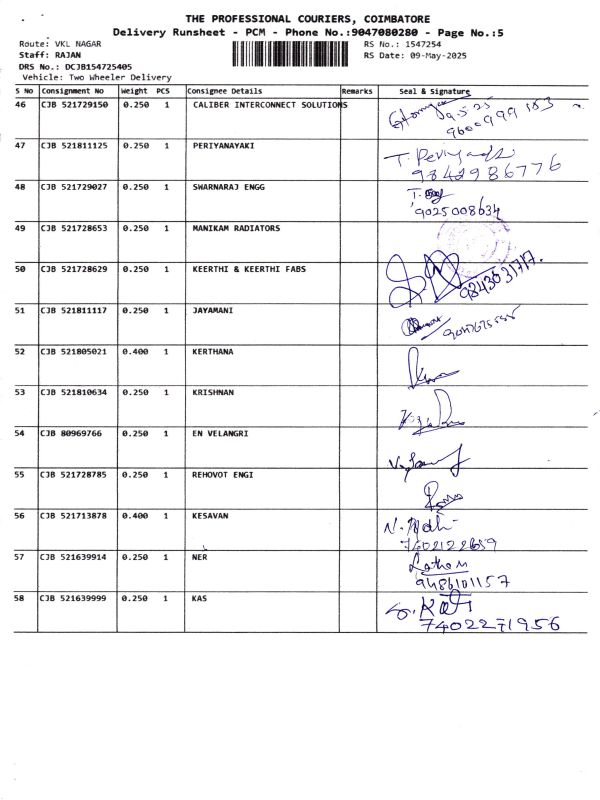 THE PROFESSIONAL COURIERS, COIMBATORE
Delivery Runsheet - PCM - Phone No.:9047080280 - Page No.:5
Route: VKL NAGAR RS No.: 1547254
Staff: RAJAN RS Date: 09-May-2025
DRS No.: DCJB154725405
Vehicle: Two Wheeler Delivery
S No Consignment No Weight PCS Consignee Details Remarks Seal & Signature
46 CJB 521729150 0.250 1 CALIBER INTERCONNECT SOLUTIONS 9.5.25
9600999183
47 CJB 521811125 0.250 1 PERIYANAYAKI T.
9842986776
48 CJB 521729027 0.250 1 SWARNARAJ ENGG T.
9025008634
49 CJB 521728653 0.250 1 MANIKAM RADIATORS
50 CJB 521728629 0.250 1 KEERTHI & KEERTHI FABS 9843031717.
51 CJB 521811117 0.250 1 JAYAMANI
52 CJB 521805021 0.400 1 KERTHANA
53 CJB 521810634 0.250 1 KRISHNAN
54 CJB 80969766 0.250 1 EN VELANGRI
55 CJB 521728785 0.250 1 REHOVOT ENGI
56 CJB 521713878 0.400 1 KESAVAN
57 CJB 521639914 0.250 1 NER
9486101157
58 CJB 521639999 0.250 1 KAS
7402271956